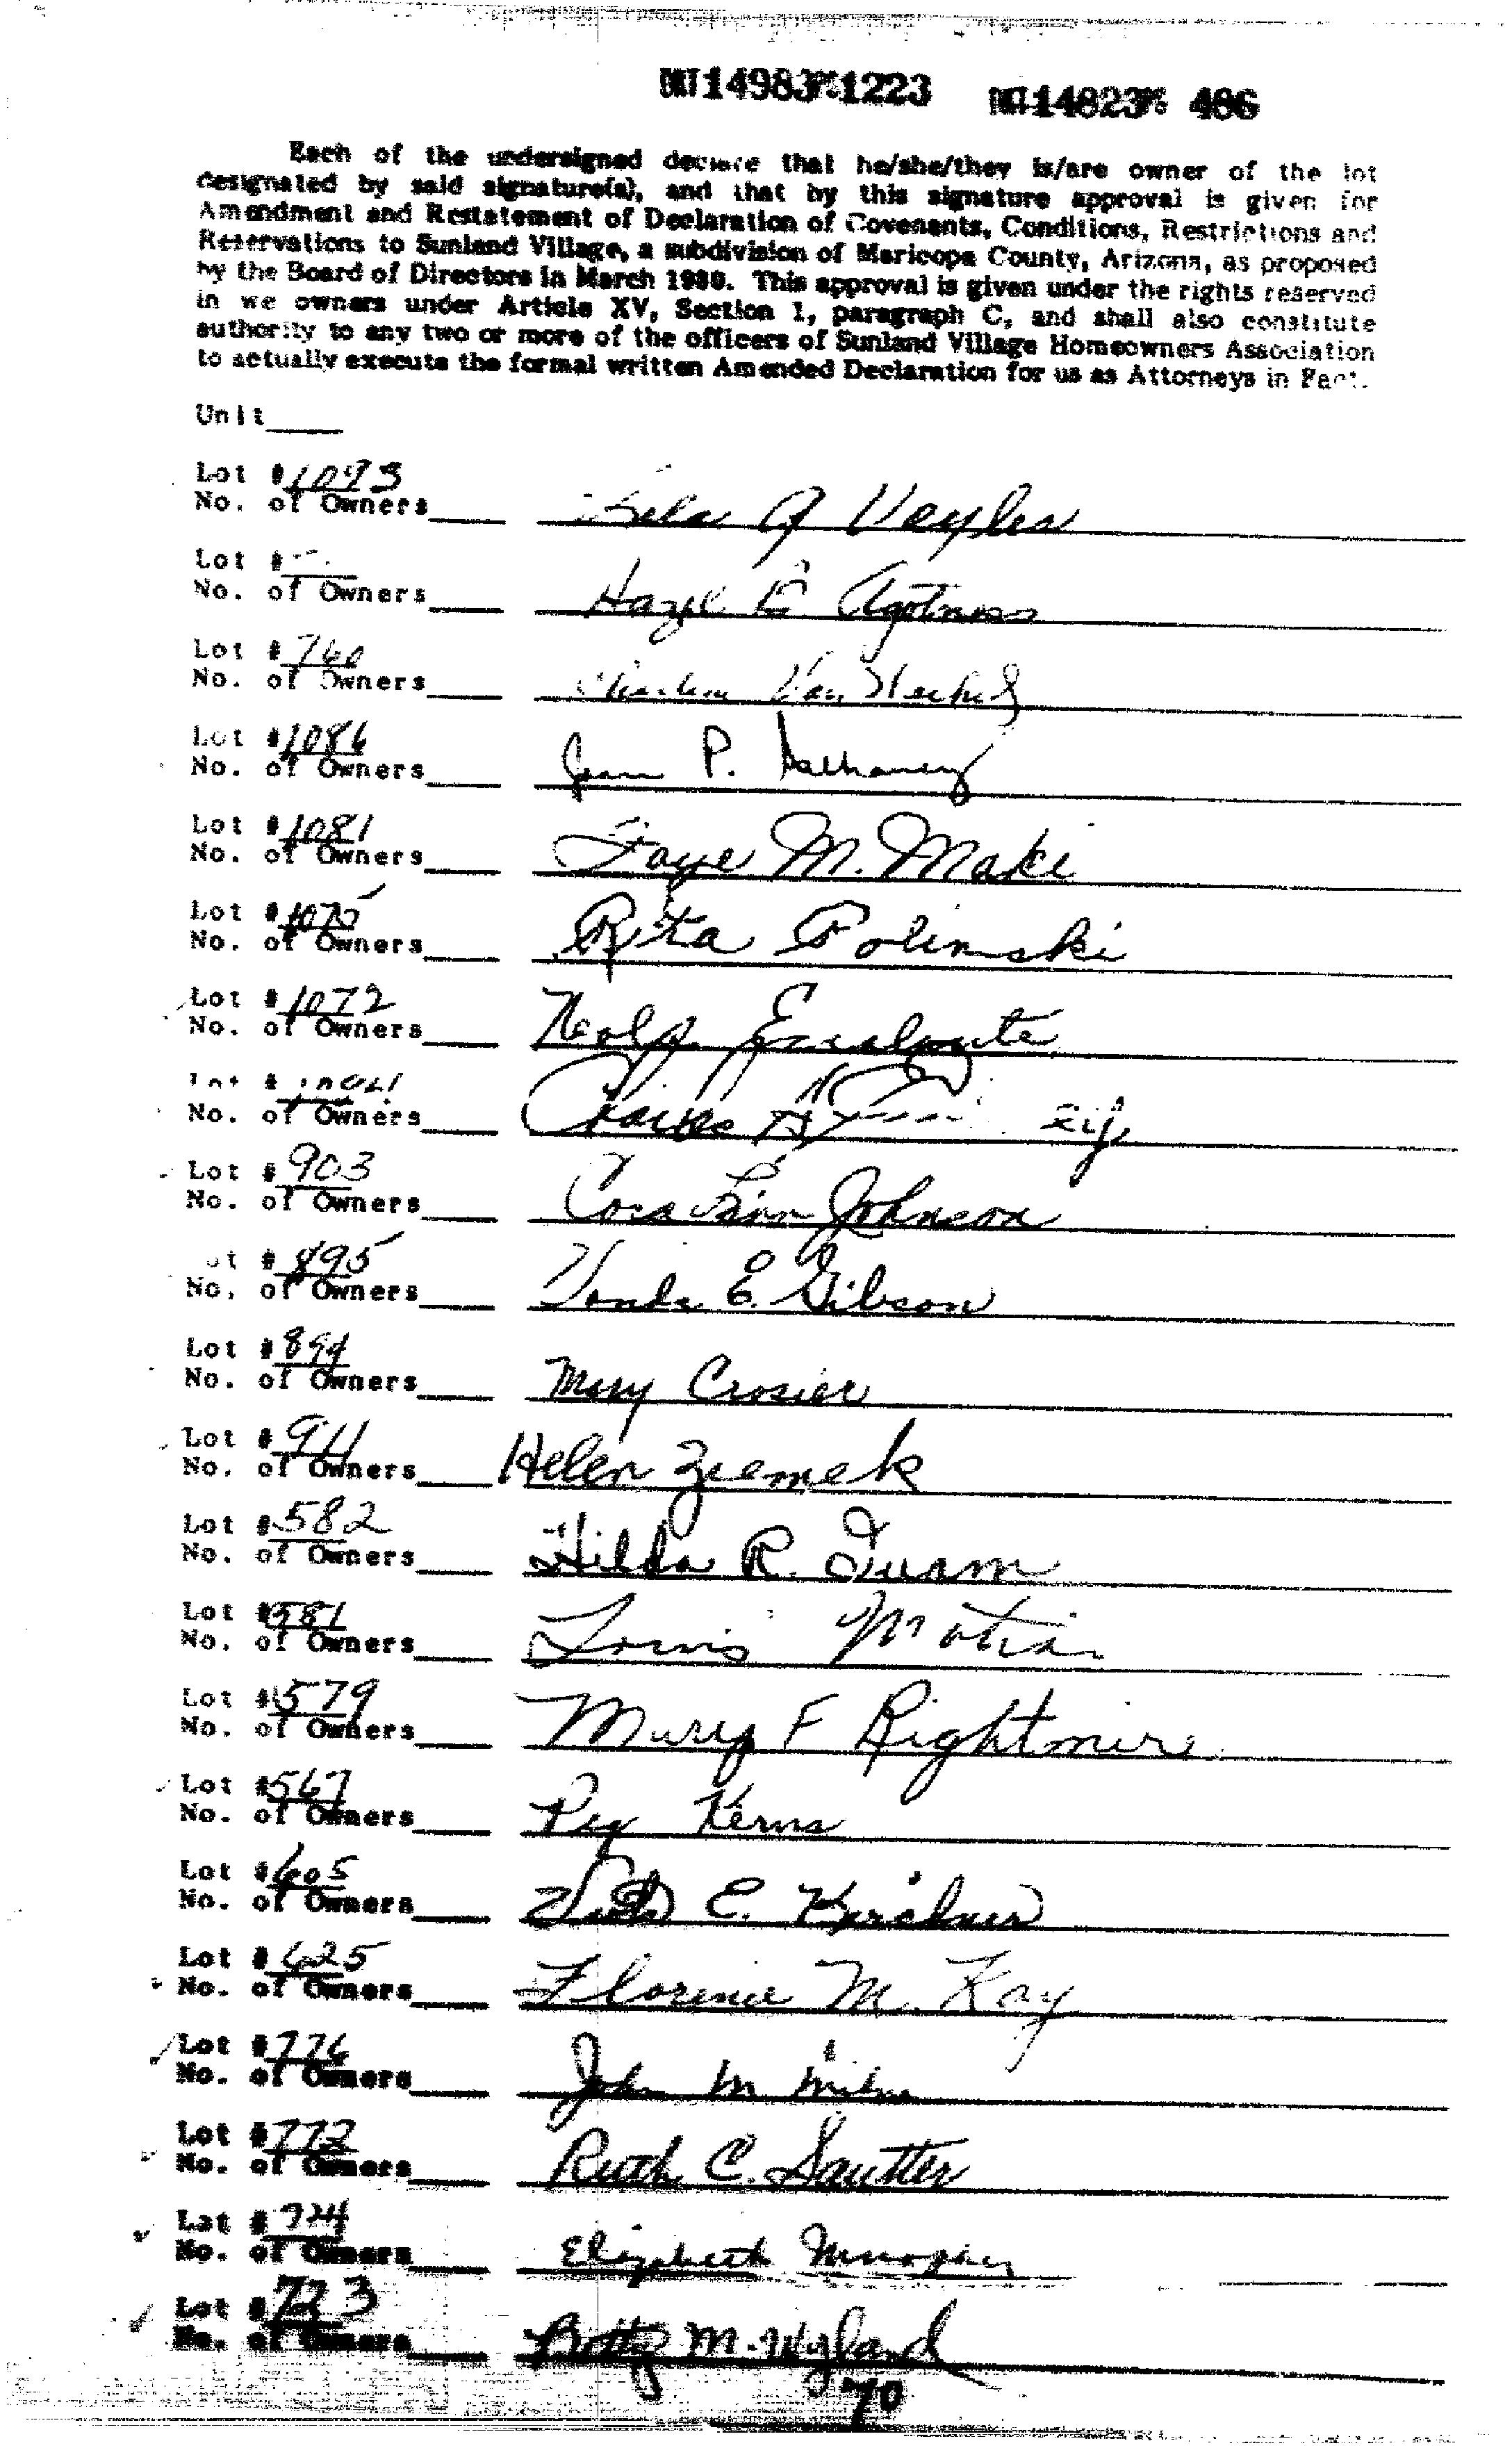 DKT 14983 PG 1223 DKT 14823 PG 486
Each of the undersigned declare that he/she/they is/are owner of the lot
designated by said signature(s), and that by this signature approval is given for
Amendment and Restatement of Declaration of Covenants, Conditions, Restrictions and
Reservations to Sunland Village, a subdivision of Maricopa County, Arizona, as proposed
by the Board of Directors in March 1980. This approval is given under the rights reserved
in we owners under Article XV, Section 1, paragraph C, and shall also constitute
authority to any two or more of the officers of Sunland Village Homeowners Association
to actually execute the formal written Amended Declaration for us as Attorneys in Fact.
Unit
Lot #1093
No. of Owners A
Lot #
No. of Owners Hazel E Agotness
Lot #760
No. of Owners Van
Lot #1086
No. of Owners Jean P.
Lot #1081
No. of Owners Faye M. Maki
Lot #1075
No. of Owners Rita Polinski
Lot #1072
No. of Owners Escalante
Lot #
No. of Owners Charles
Lot #903
No. of Owners Cora Johnson
Lot #895
No. of Owners E. Gibson
Lot #894
No. of Owners Mary Crosier
Lot #911
No. of Owners Helen Ziemek
Lot #582
No. of Owners Hilda R.
Lot #581
No. of Owners Louis
Lot #579
No. of Owners Mary F Rightmire
Lot #567
No. of Owners Peg Kerns
Lot #605
No. of Owners E. Kirchner
Lot #625
No. of Owners Florence M. Kay
Lot #776
No. of Owners John M Milne
Lot #772
No. of Owners Ruth C. Sautter
Lot #724
No. of Owners Elizabeth
Lot #723
No. of Owners Betty M. Wyland
70